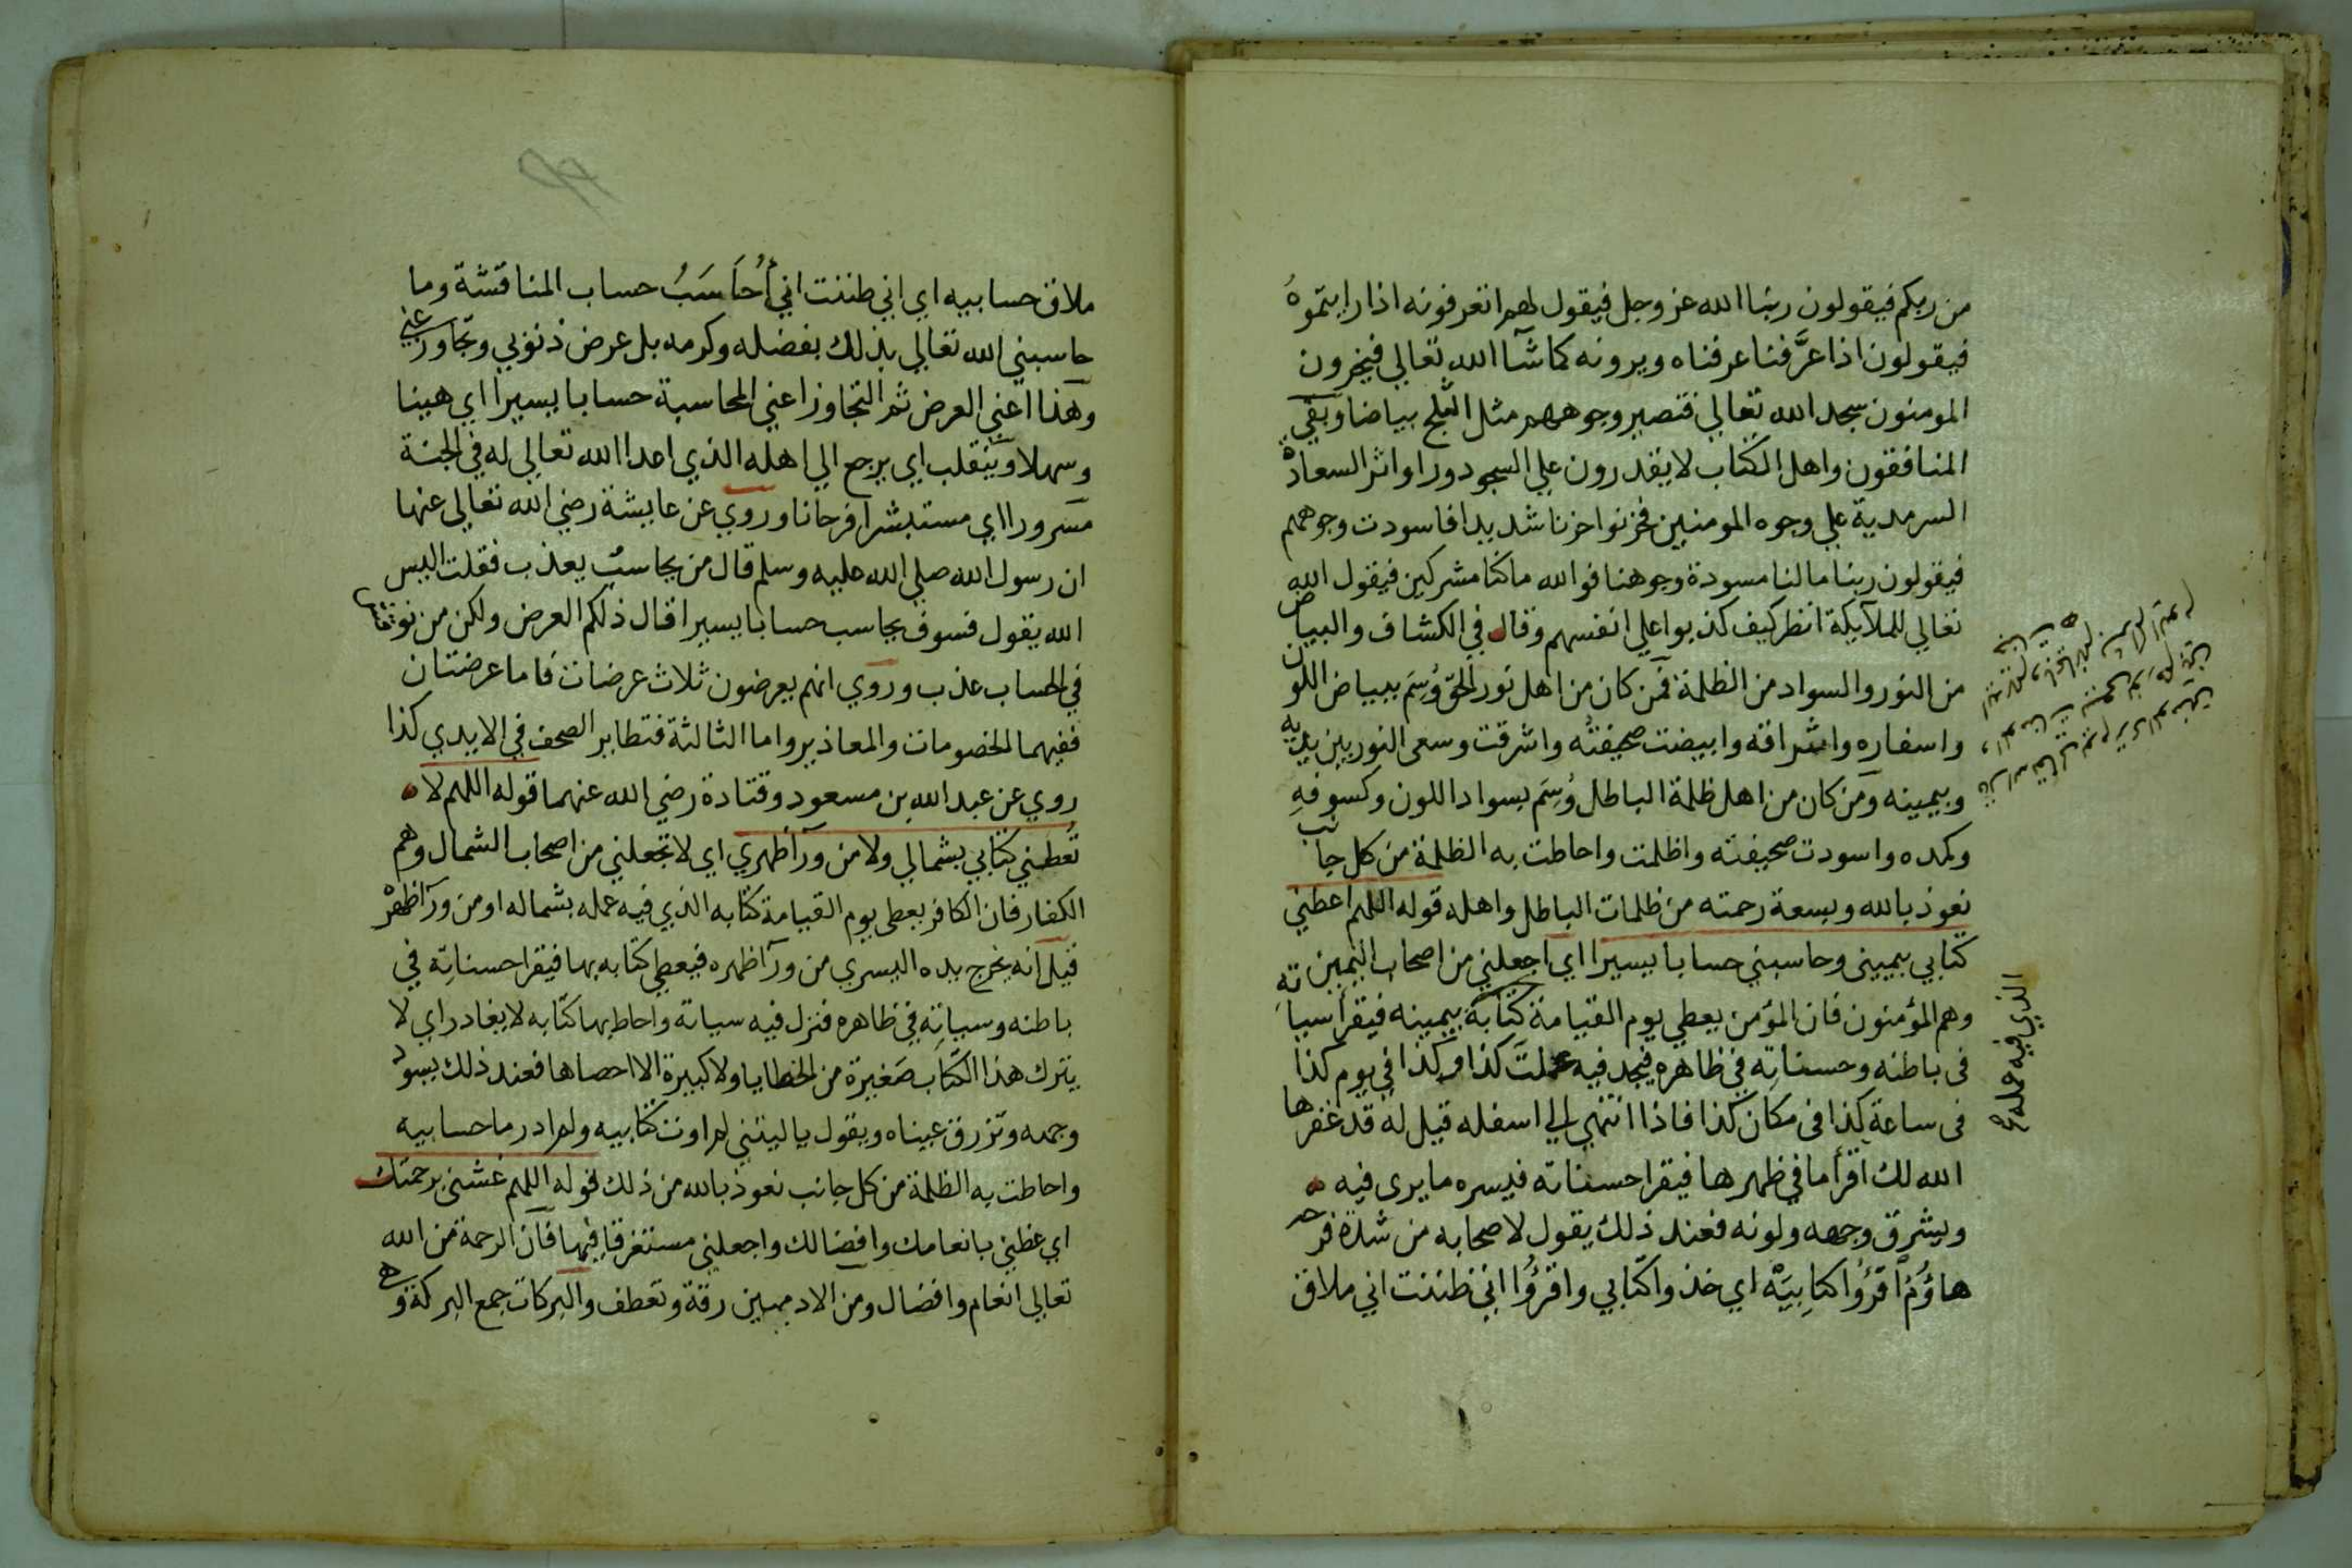 من ربكم فيقولون ربنا الله عز وجل فيقول لهم اتعرفونه اذا رايتموهُ
فيقولون اذا عرَّفنا عرفناه ويرونه كما شآ الله تعالي فيخرون
المومنون سجد الله تعالي فتصير وجوههم مثل الثلج بياضا وبقي
المنافقون واهل الكتاب لا يقدرون علي السجود ورا واثر السعادة
السرمدية علي وجوه المومنين فحزنوا حزنا شديدا فاسودت وجوههم
فيقولون ربنا مالنا مسودة وجوهنا فوالله ما كنا مشركين فيقول الله
تعالي للملآيكة انظر كيف كذبوا علي انفسهم وقال في الكشاف والبياض
من النور والسواد من الظلمة فمن كان من اهل نور الحق وُسِمَ ببياض اللون
واسفاره واشراقه وابيضت صحيفته واشرقت وسعى النور بين يديه
وبيمينه ومن كان من اهل ظلمة الباطل وُسِمَ بسواد اللون وكسوفهِ
وكمده واسودت صحيفته واظلمت واحاطت به الظلمة من كل جانب
نعوذ بالله وبسعة رحمته من ظلمات الباطل واهله قوله اللهم اعطني
كتابي بيميني وحاسبني حسابا يسيرا اي اجعلني من اصحاب اليمين
وهم المؤمنون فان المؤمن يعطي يوم القيامة كتابة بيمينه فيقرأ سياته
فى باطنه وحسناتِه في ظاهره فيجد فيه عملتَ كذا وكذا في يوم كذا
فى ساعة كذا فى مكان كذا فاذا انتهي الي اسفله قيل له قد غفرها
الله لك اقرأ ما في ظهرها فيقرا حسناته فيسره ما يرى فيه
ويشرق وجهه ولونه فعند ذلك يقول لاصحابه من شدة فرحه
هاؤُمُ اقرؤُا كتابِيَهْ اي خذوا كتابي واقرؤُا اني ظننت اني ملاق
الذي فيه عمله
ملاق حسابيه اي اني ظننت اني أُحَاسَبُ حساب المناقشة وما
حاسبني الله تعالي بذلك بفضله وكرمه بل عرض ذنوبي وتجاوز عني
وهذا اعني العرض ثم التجاوز اعني المحاسبة حسابا يسيرا اي هينا
وسهلا وينقلب اي يرجع الي اهله الذي اعدا الله تعالي له في الجنة
مسرورا اي مستبشرا فرحانا وروي عن عايشة رضي الله تعالي عنها
ان رسول الله صلي الله عليه وسلم قال من يحاسب يعذب فقلت اليس
الله يقول فسوف يحاسب حسابا يسيرا قال ذلكم العرض ولكن من نوقش
في الحساب عذب وروي انهم يعرضون ثلاث عرضات فاما عرضتان
ففيهما الخصومات والمعاذير واما الثالثة فتطاير الصحف في الايدي كذا
روي عن عبد الله بن مسعود وقتادة رضي الله عنهما قوله اللهم لا
تُعطني كتابي بشمالي ولا من ورآ ظهري اي لا تجعلني من اصحاب الشمال وهم
الكفار فان الكافر يعطى يوم القيامة كتابه الذي فيه عمله بشماله او من ورآ ظهره
قيل انه يخرج يده اليسري من ورآ ظهره فيعطي كتابه بها فيقرا حسناتِه في
باطنه وسياتِه في ظاهره فنزل فيه سياته واحاط بها كتابه لا يغادر اي لا
يترك هذا الكتاب صَغيرة من الخطايا ولا كبيرة الا احصاها فعند ذلك يسود
وجهه وتزرق عيناه ويقول يا ليتني لم اوت كتابيه ولم ادر ما حسابيه
واحاطت به الظلمة من كل جانب نعوذ بالله من ذلك قوله اللهم غشني برحمتك
اي غطني بانعامك وافضالك واجعلني مستغرقا فيها فان الرحمة من الله
تعالي انعام وافضال ومن الادميين رقة وتعطف والبركات جمع البركة وهي